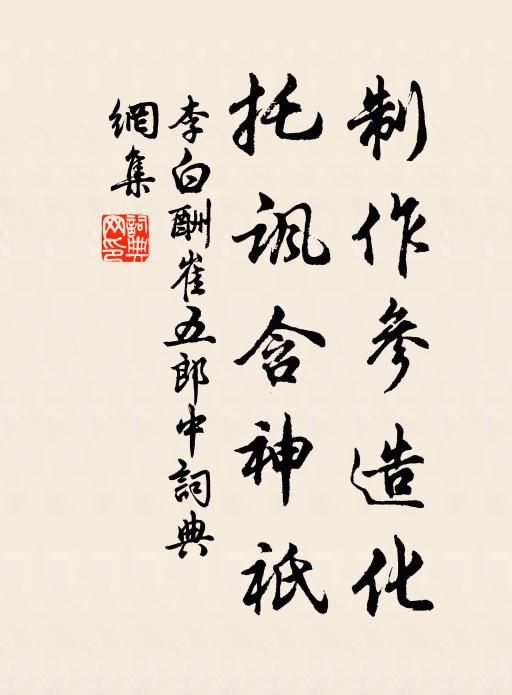 制作参造化
托讽含神祇
李白酬崔五郎中詞典
網集
詞典
网印